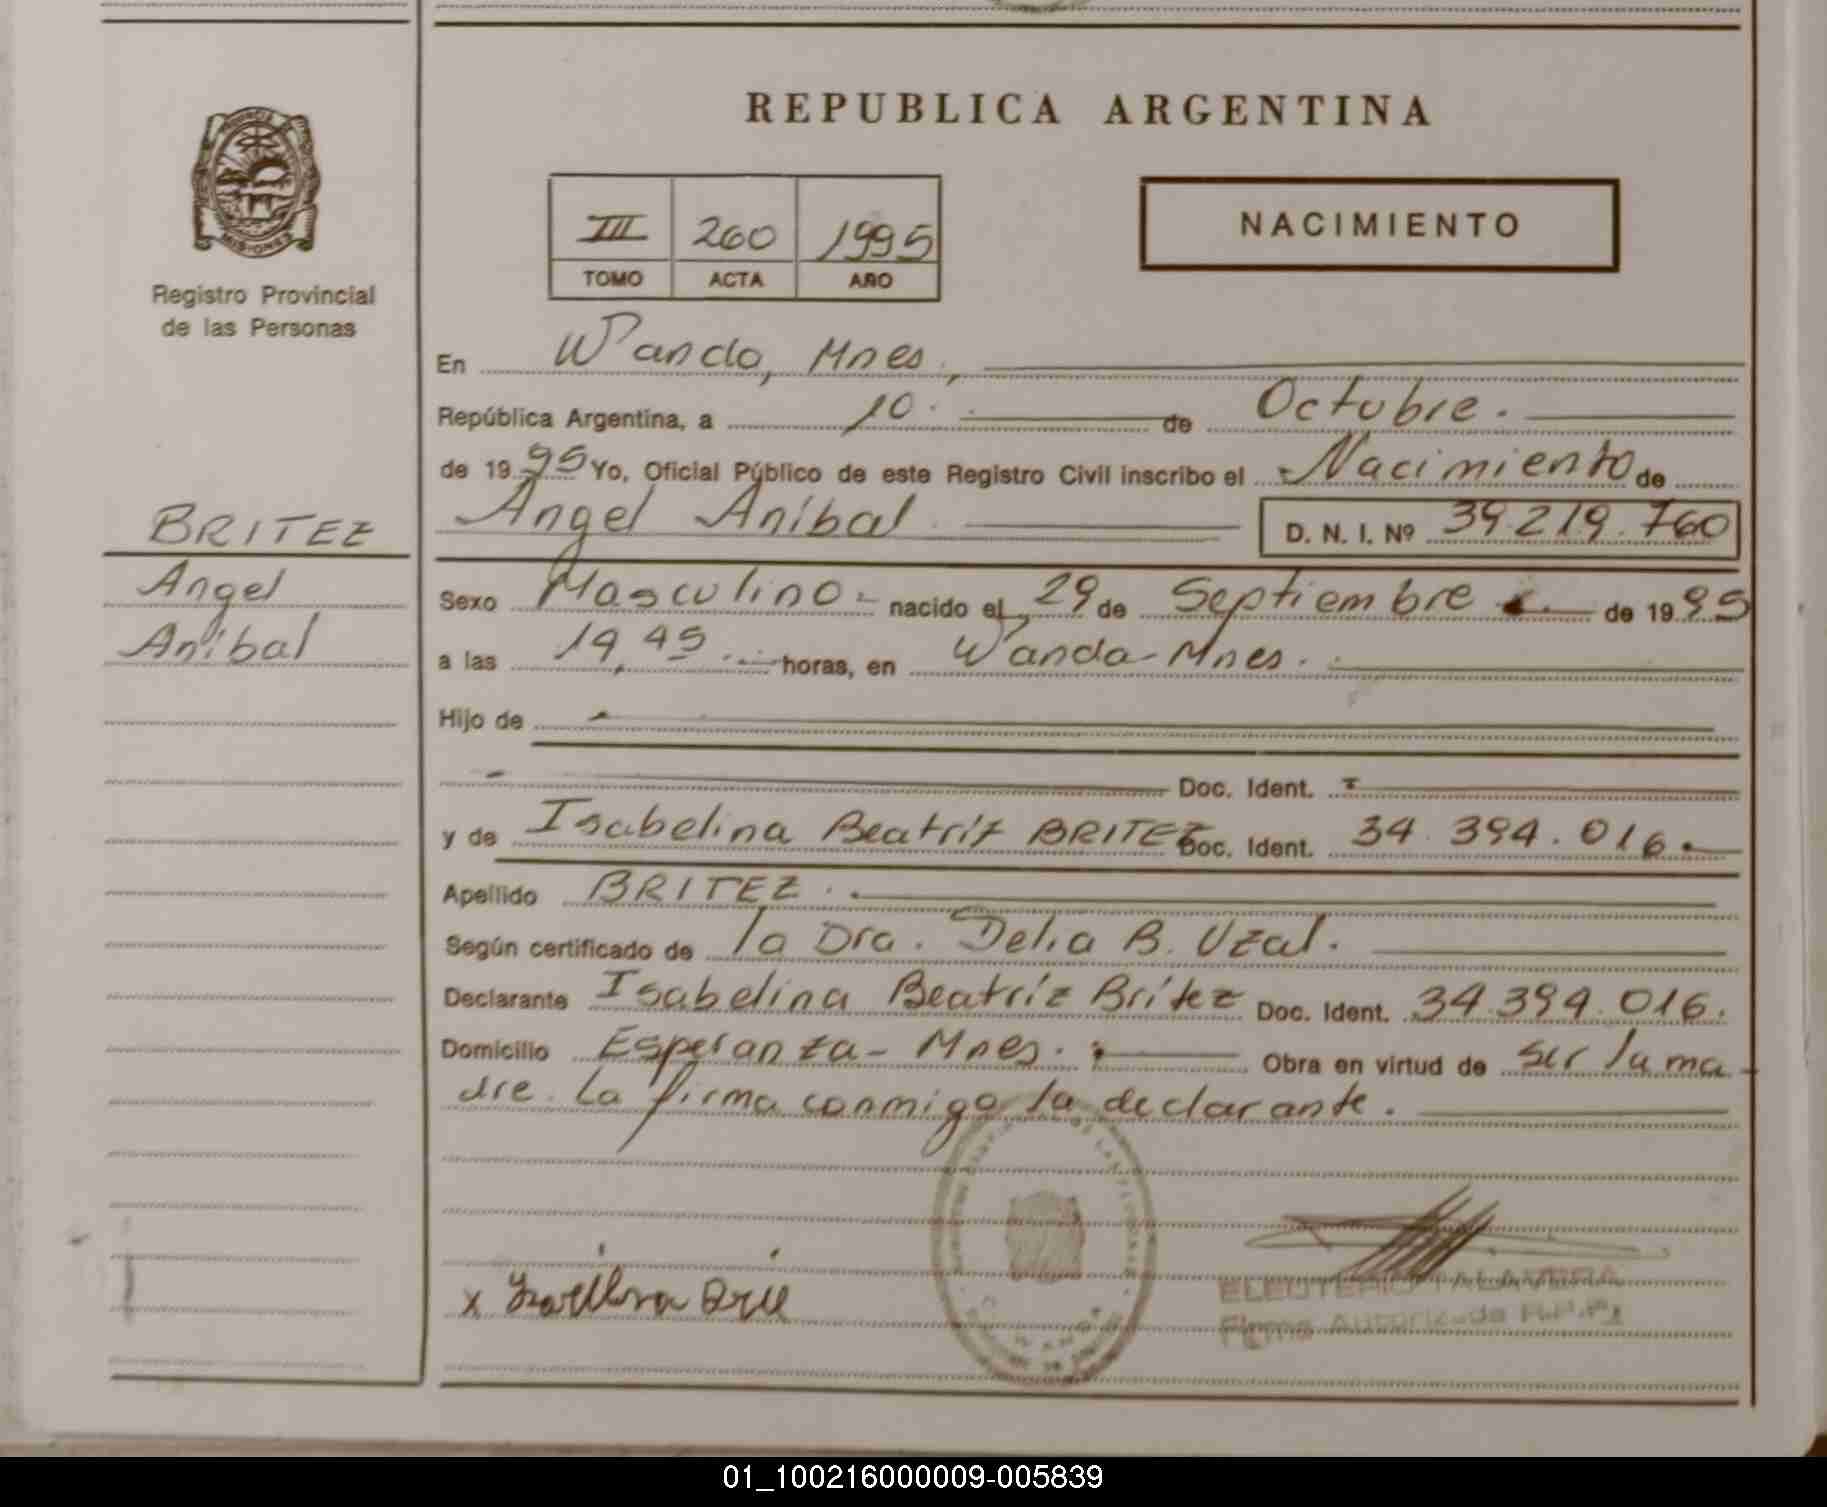 REPUBLICA ARGENTINA
PROVINCIA DE
MISIONES
Registro Provincial
de las Personas
III 260 1995
TOMO ACTA AÑO
NACIMIENTO
En Wanda, Mnes.,
República Argentina, a 10. de Octubre.
de 19 95 Yo, Oficial Público de este Registro Civil inscribo el Nacimiento de
Angel Aníbal D. N. I. Nº 39.219.760
BRITEZ
Angel
Aníbal
Sexo Masculino nacido el 29 de Septiembre de 19 95
a las 19,45 horas, en Wanda-Mnes.
Hijo de
Doc. Ident.
y de Isabelina Beatríz BRITEZ Doc. Ident. 34.394.016.
Apellido BRITEZ.
Según certificado de la Dra. Delia B. Uzal.
Declarante Isabelina Beatríz Brítez Doc. Ident. 34.394.016.
Domicilio Esperanza-Mnes. Obra en virtud de ser la ma
dre. La firma conmigo la declarante.
x
ELEUTERIO TALAVERA
Firma Autorizada R.P.P.
01_100216000009-005839